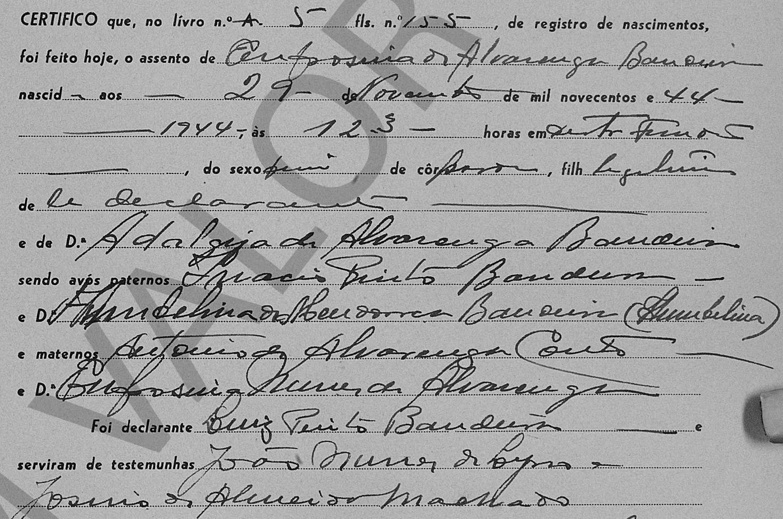 CERTIFICO que, no livro n.º A 5 fls. n.º 155, de registro de nascimentos,
foi feito hoje, o assento de Eufrosina de Alvarenga Bandeira
nascid aos 29 de Novembro de mil novecentos e 44
1944, às 12 horas em
, do sexo de côr parda, filh legitimo
de le declarante
e de D.ª Adalgiza de Alvarenga Bandeira
sendo avós paternos Ignacio Pinto Bandeira
e D.ª Humbelina de Mendonca Bandeira (Humbelina)
e maternos Antonio de Alvarenga Couto
e D.ª Eufrosina Nunes de Alvarenga
Foi declarante Luiz Pinto Bandeira e
serviram de testemunhas João Nunes de e
de Almeida Machado
VALOR